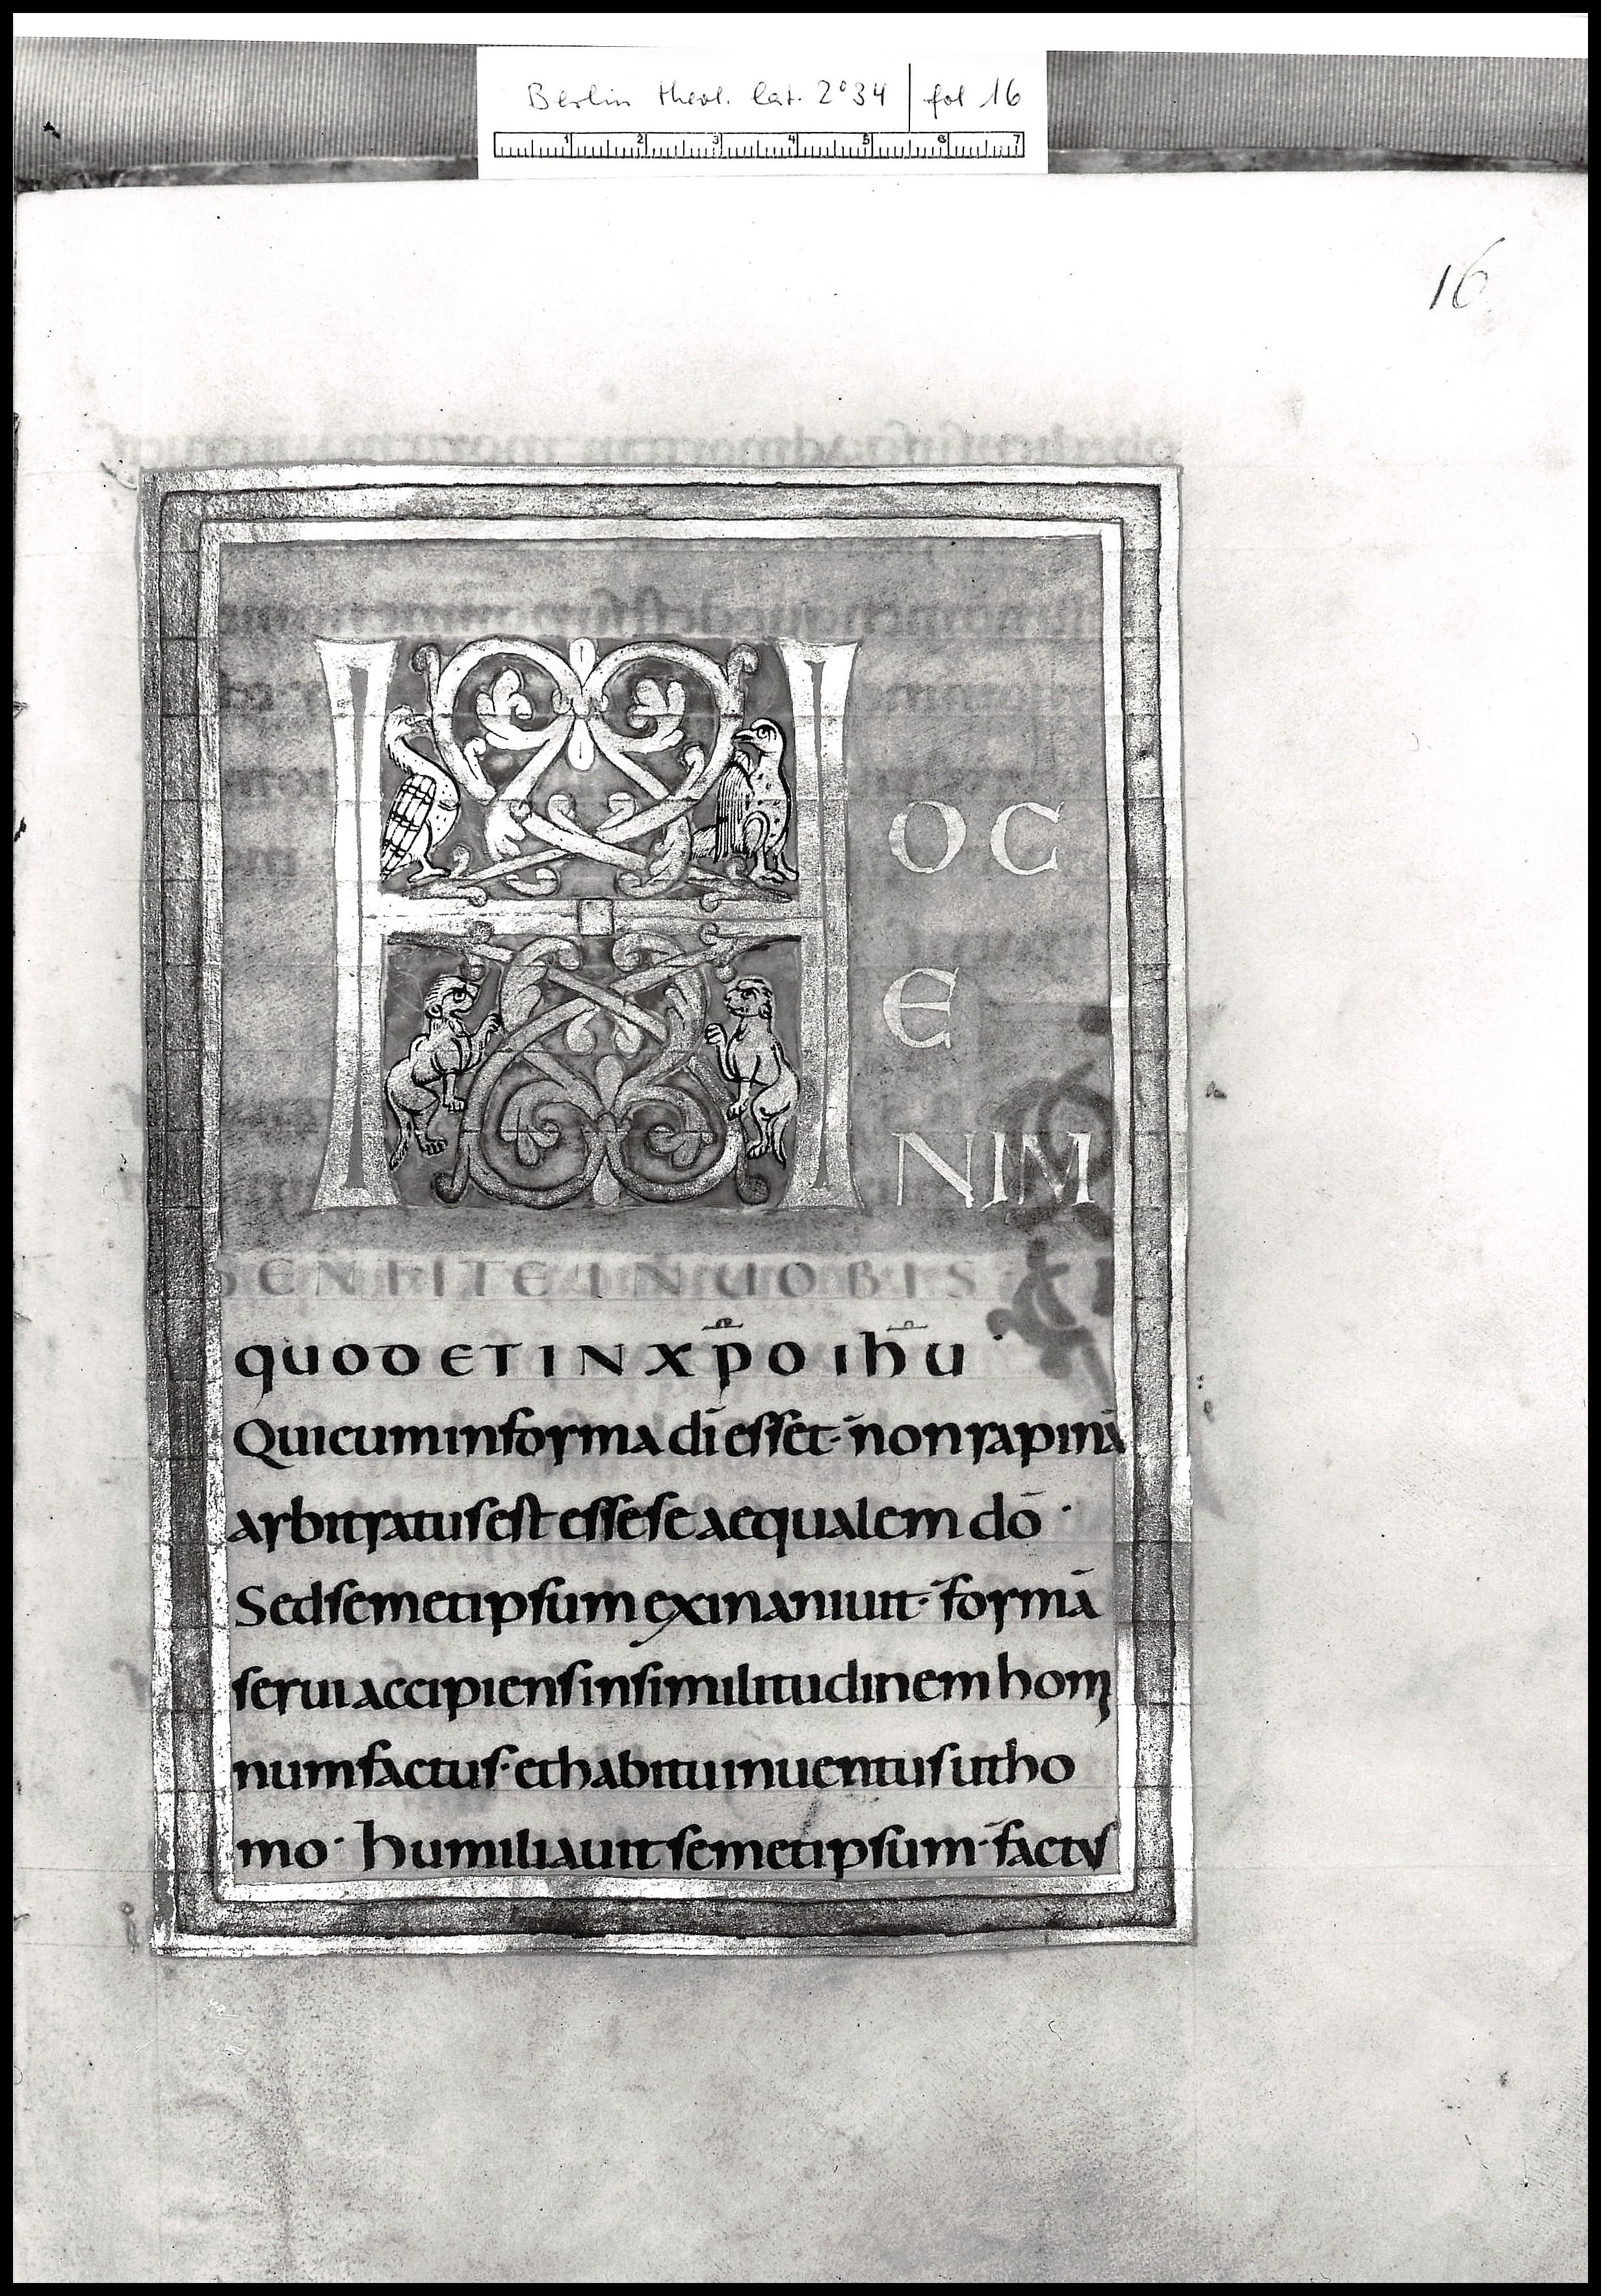 Berlin theol. lat. 2° 34 | fol 16
1 2 3 4 5 6 7
16
HOC
E
NIM
SENTITE IN UOBIS
QUOD ET IN XP̄O IH̄U
Qui cum in forma dī esset· non rapinā
arbitratus est esse se aequalem dō·
Sed semetipsum exinaniuit· formā
serui accipiens in similitudinem homi
num factus· et habitu inuentus ut ho
mo· humiliauit semetipsum· factus